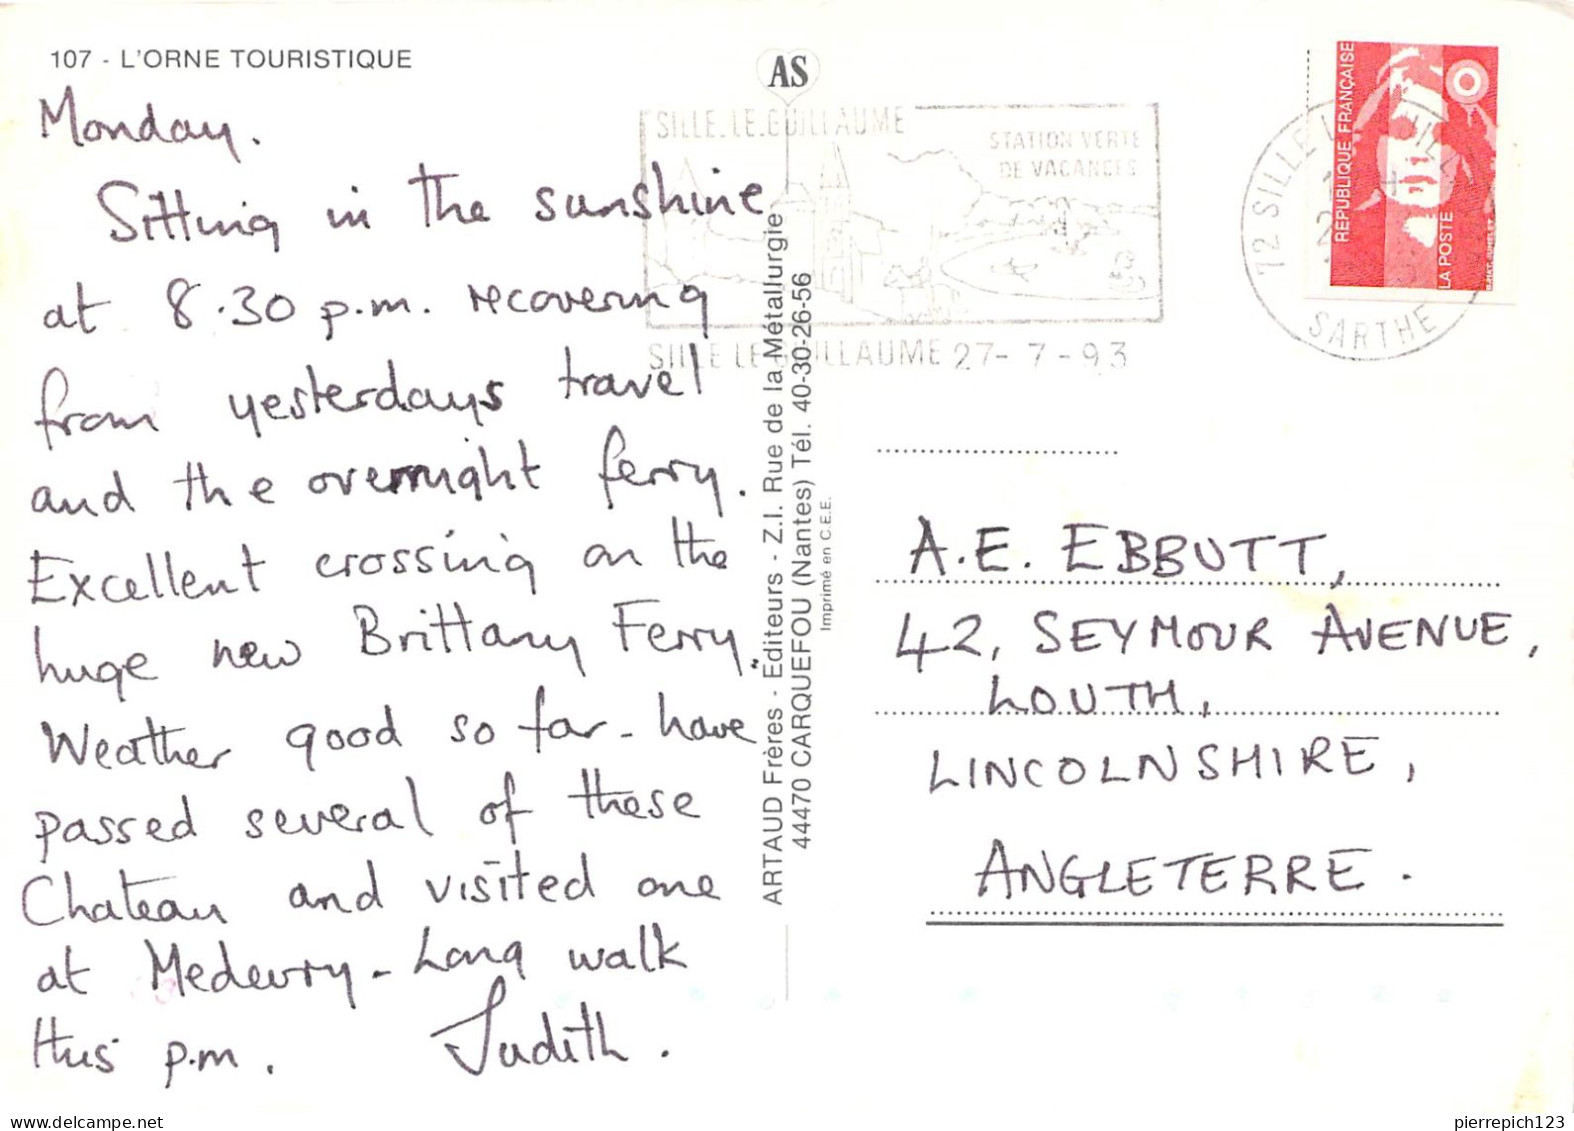 107 - L'ORNE TOURISTIQUE
AS
Monday.
Sitting in the sunshine
at 8.30 p.m. recovering
from yesterdays travel
and the overnight ferry.
Excellent crossing on the
huge new Brittany Ferry.
Weather good so far - have
passed several of these
Chateau and visited one
at Medevry - Long walk
this p.m. Judith.
SILLE.LE.GUILLAUME
STATION VERTE
DE VACANCES
SILLE LE GUILLAUME 27-7-93
ARTAUD Frères - Editeurs - Z.I. Rue de la Métallurgie
44470 CARQUEFOU (Nantes) Tél. 40-30-26-56
Imprimé en C.E.E.
72 SILLE
SARTHE
REPUBLIQUE FRANÇAISE
LA POSTE
A.E. EBBUTT,
42, SEYMOUR AVENUE,
LOUTH,
LINCOLNSHIRE,
ANGLETERRE.
pierrepich123